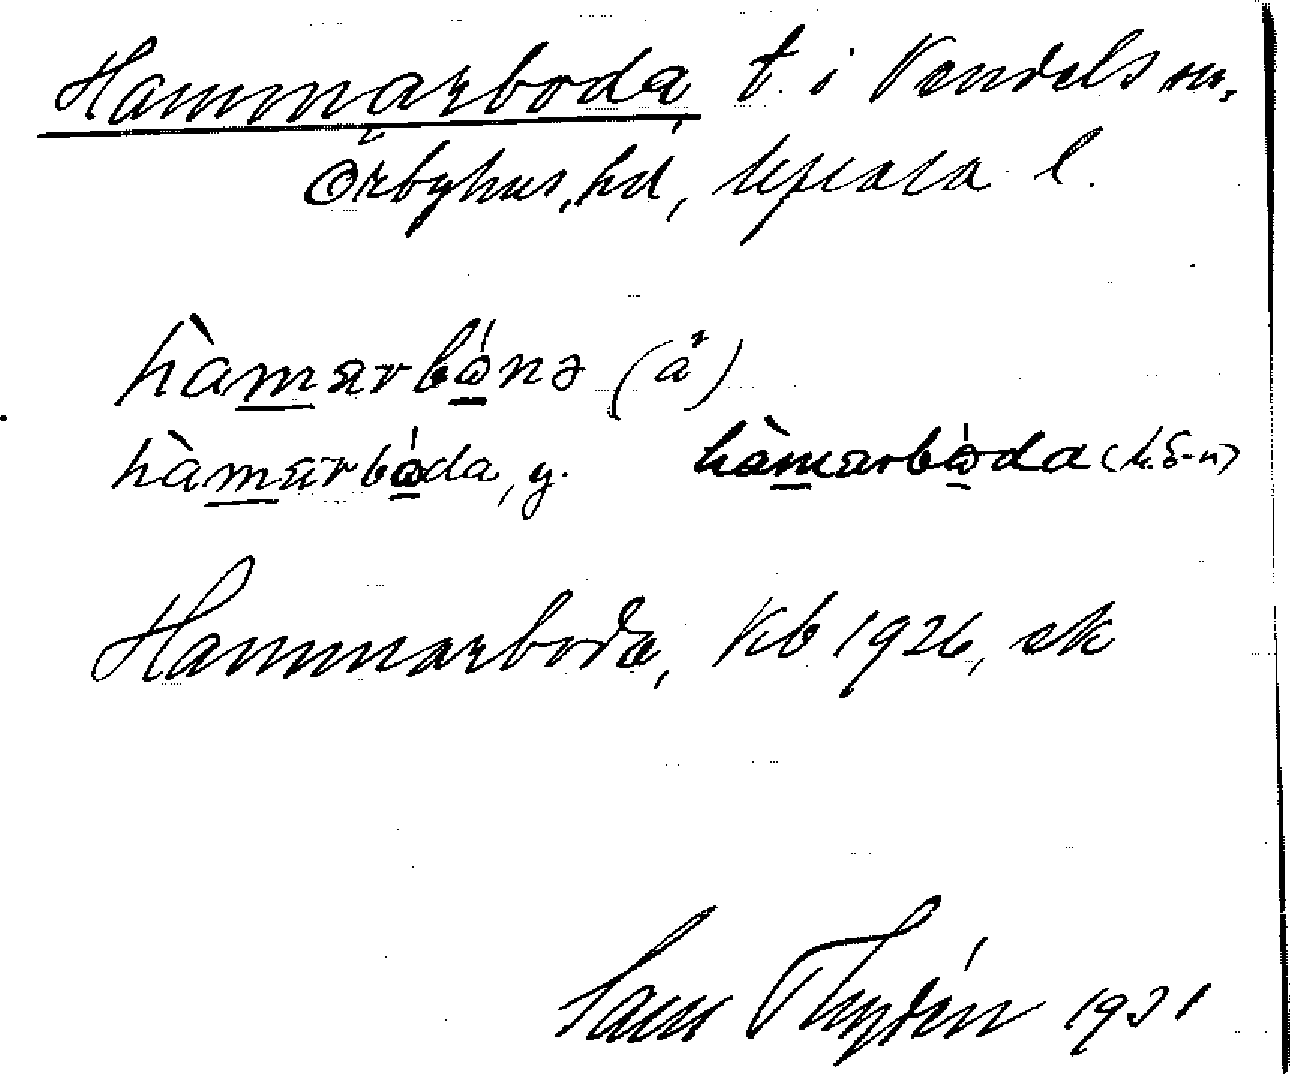 Hammarboda t. i Vendels sn,
Örbyhus hd, Uppsala l.
hàmarbώnə (å)
hàmarbώda, y. hàmarbώda
Hammarboda, Kb 1926, ek
Sam Thydén 1931